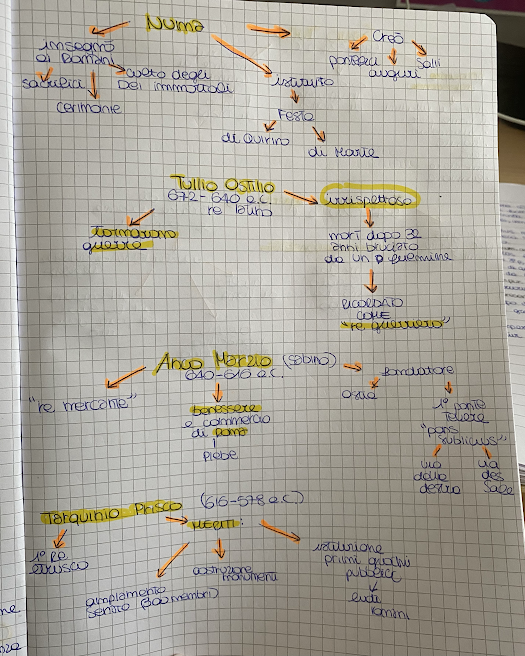 Numa
insegnò
ai Romani
sacrifici
cerimonie
culto degli
Dei immortali
istituito
Feste
di Quirino
di Marte
Creò
pontefici
auguri
Salii
Tullio Ostilio
672-640 a.C.
re latino
tornarono
guerre
irrispettoso
morì dopo 32
anni bruciato
da un fulmine
RICORDATO
COME
"re guerriero"
Anco Marzio (sabino)
640-616 a.C.
"re mercante"
benessere
e commercio
di Roma
plebe
fondatore
Ostia
1° ponte
Tevere
"pons
sublicius"
via
della
destra
via
del
Sale
Tarquinio Prisco (616-578 a.C.)
1° RE
etrusco
MERITI:
ampliamento
senato (300 membri)
costruzione
monumenti
istituzione
primi giochi
pubblici
ludi
romani